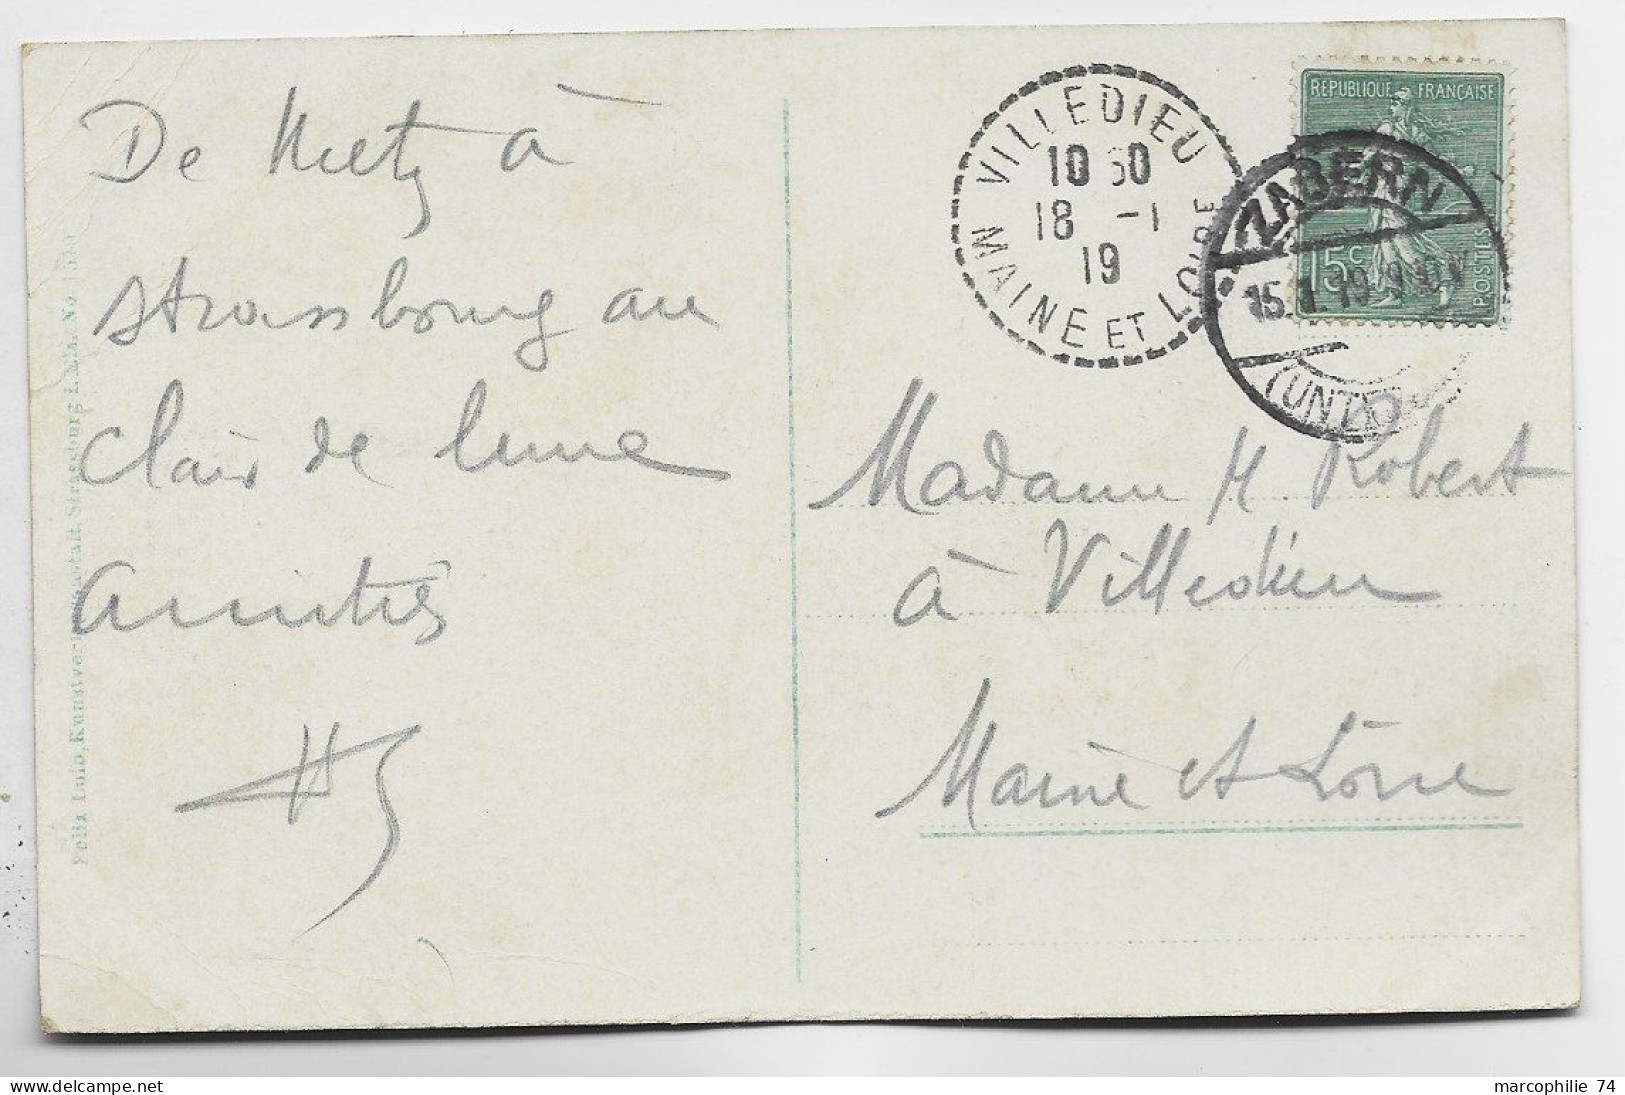 De Metz à
Strassbourg au
Clair de lune
Amitiés
VILLEDIEU
10 30
18 -1
19
MAINE ET LOIRE
RÉPUBLIQUE FRANÇAISE
15c
POSTES
ZABERN
15.1.19.9-10V
Madame H Robert
à Villedieu
Maine et Loire
Felix Luib, Kunstverlagsanstalt Strassburg i. Els. No
marcophilie 74